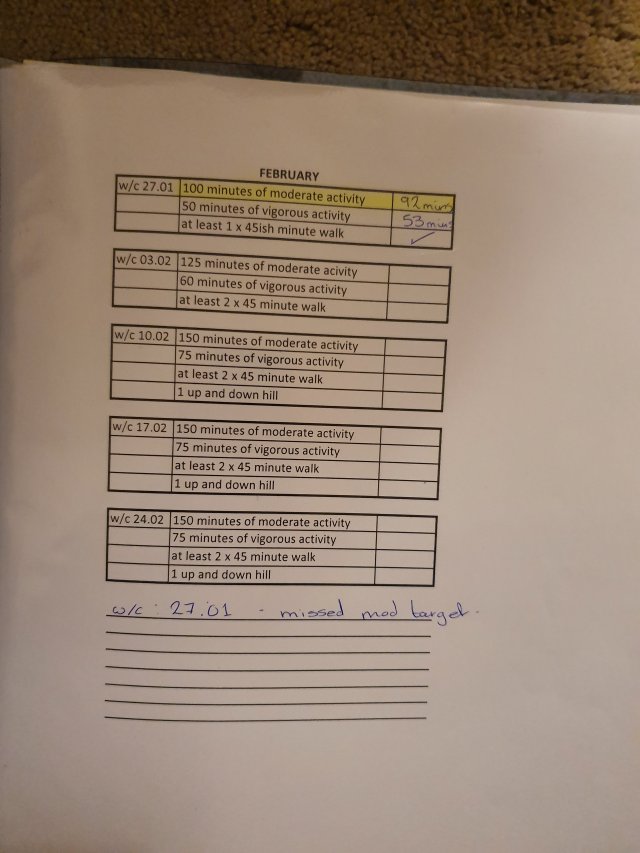 FEBRUARY
w/c 27.01 100 minutes of moderate activity 92 mins
50 minutes of vigorous activity 53 mins
at least 1 x 45ish minute walk ✓
w/c 03.02 125 minutes of moderate acivity
60 minutes of vigorous activity
at least 2 x 45 minute walk
w/c 10.02 150 minutes of moderate activity
75 minutes of vigorous activity
at least 2 x 45 minute walk
1 up and down hill
w/c 17.02 150 minutes of moderate activity
75 minutes of vigorous activity
at least 2 x 45 minute walk
1 up and down hill
w/c 24.02 150 minutes of moderate activity
75 minutes of vigorous activity
at least 2 x 45 minute walk
1 up and down hill
w/c : 27.01 - missed mod target.